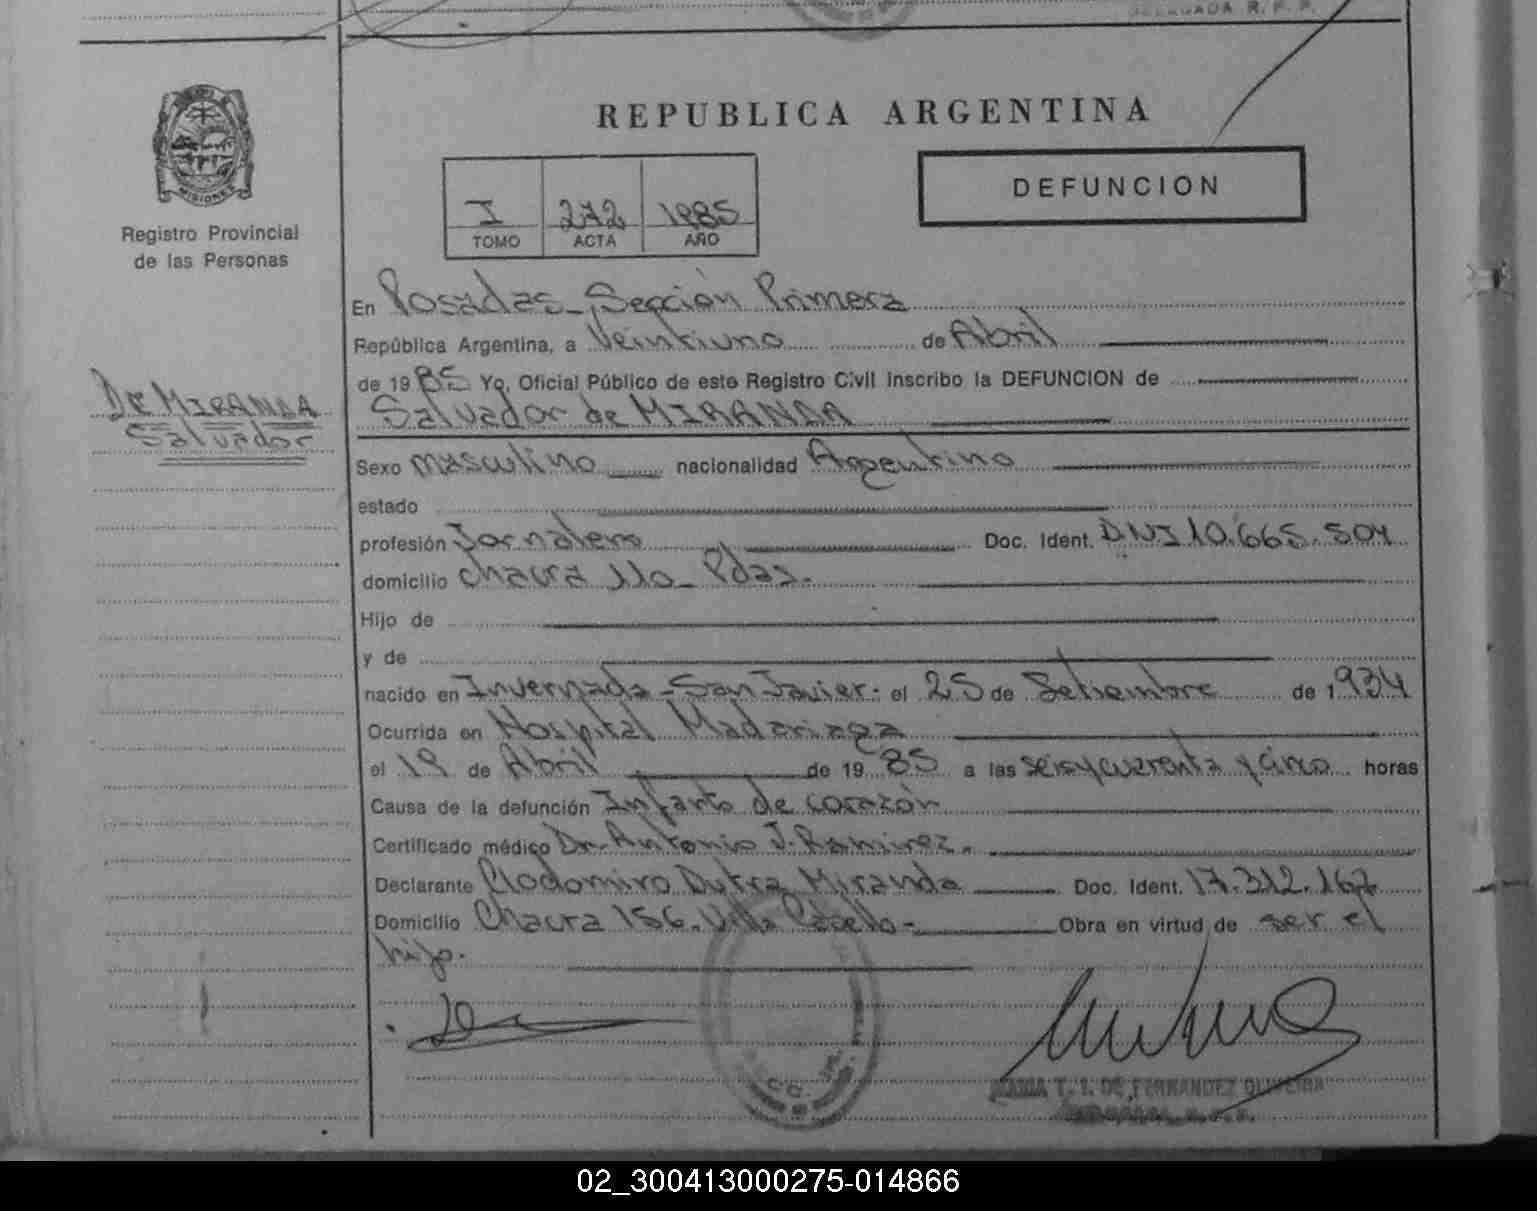 DELEGADA R. P. P.
REPUBLICA ARGENTINA
MISIONES
Registro Provincial
de las Personas
I 272 1985
TOMO ACTA AÑO
DEFUNCION
De MIRANDA
Salvador
En Posadas - Sección Primera
República Argentina, a Veintiuno de Abril
de 1985 Yo, Oficial Público de este Registro Civil inscribo la DEFUNCION de
Salvador de MIRANDA
Sexo masculino nacionalidad Argentino
estado
profesión Jornalero Doc. Ident. DNI 10.665.504
domicilio chacra 110 - Pdas.
Hijo de
y de
nacido en Invernada - San Javier - el 25 de Setiembre de 1934
Ocurrida en Hospital Madariaga
el 19 de Abril de 1985 a las seis y cuarenta y cinco horas
Causa de la defunción Infarto de corazón
Certificado médico Dr. Antonio J. Ramirez.
Declarante Clodomiro Dutra Miranda Doc. Ident. 17.312.167
Domicilio Chacra 156. Villa Cabello - Obra en virtud de ser el
hijo.
MARIA T. I. DE FERNANDEZ OLIVEIRA
02_300413000275-014866